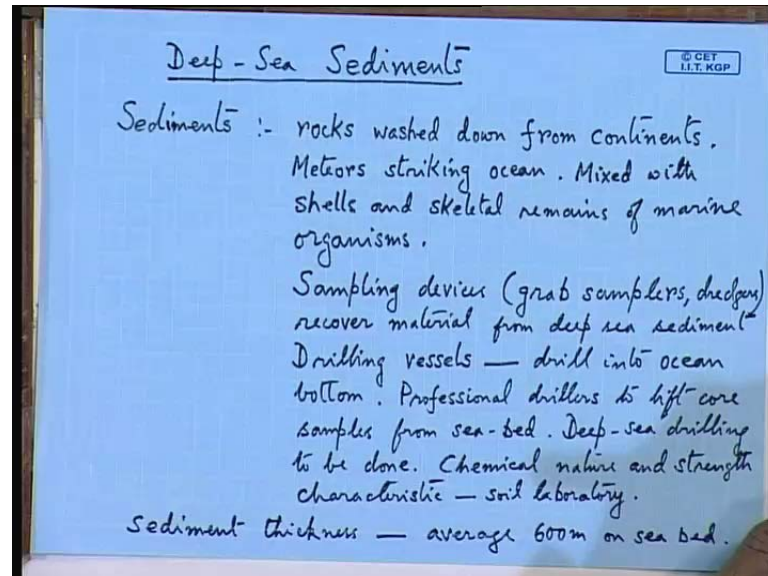 Deep-Sea Sediments
© CET
I.I.T. KGP
Sediments :- rocks washed down from continents.
Meteors striking ocean. Mixed with
shells and skeletal remains of marine
organisms.
Sampling devices (grab samplers, dredgers)
recover material from deep sea sediment
Drilling vessels — drill into ocean
bottom. Professional drillers to lift core
samples from sea-bed. Deep-sea drilling
to be done. Chemical nature and strength
characteristic — soil laboratory.
Sediment thickness — average 600m on sea bed.